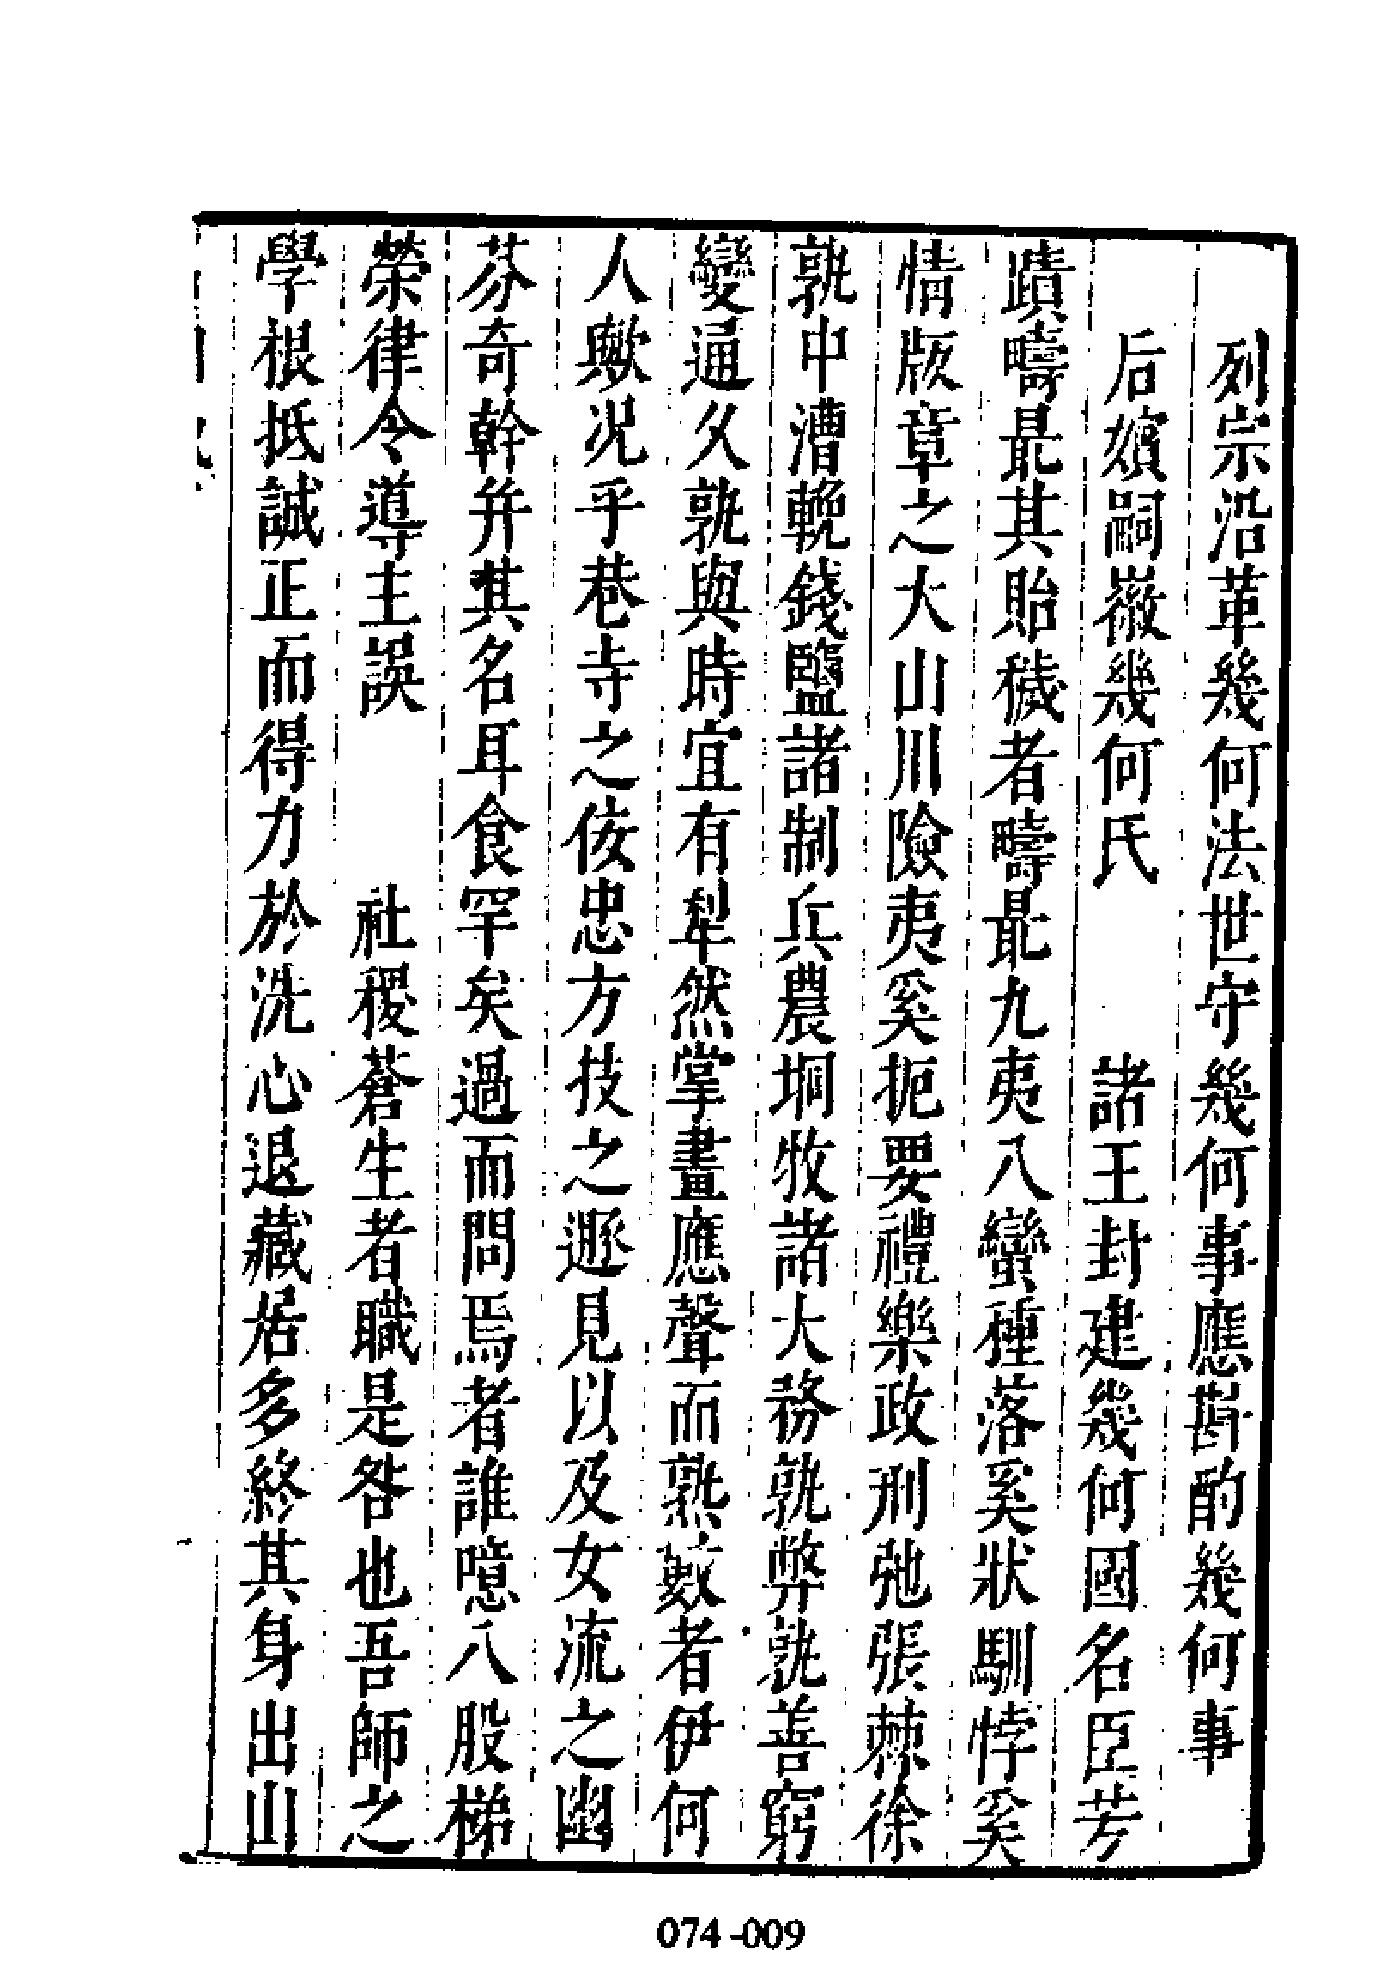 列宗沿革幾何法世守幾何事應斟酌幾何事
后嬪嗣徽幾何氏　諸王封建幾何國名臣芳
蹟疇最其貽穢者疇最九夷八蠻種落奚狀馴悖奚
情版章之大山川險夷奚扼要禮樂政刑弛張棘徐
孰中漕輓錢鹽諸制兵農垌牧諸大務孰弊孰善窮
變通久孰與時宜有犁然掌畫應聲而熟數者伊何
人歟況乎巷寺之佞忠方技之遯見以及女流之幽
芬奇幹并其名耳食罕矣過而問焉者誰噫八股梯
榮律令導主誤　社稷蒼生者職是咎也吾師之
學根抵誠正而得力於洗心退藏居多終其身出山
074-009